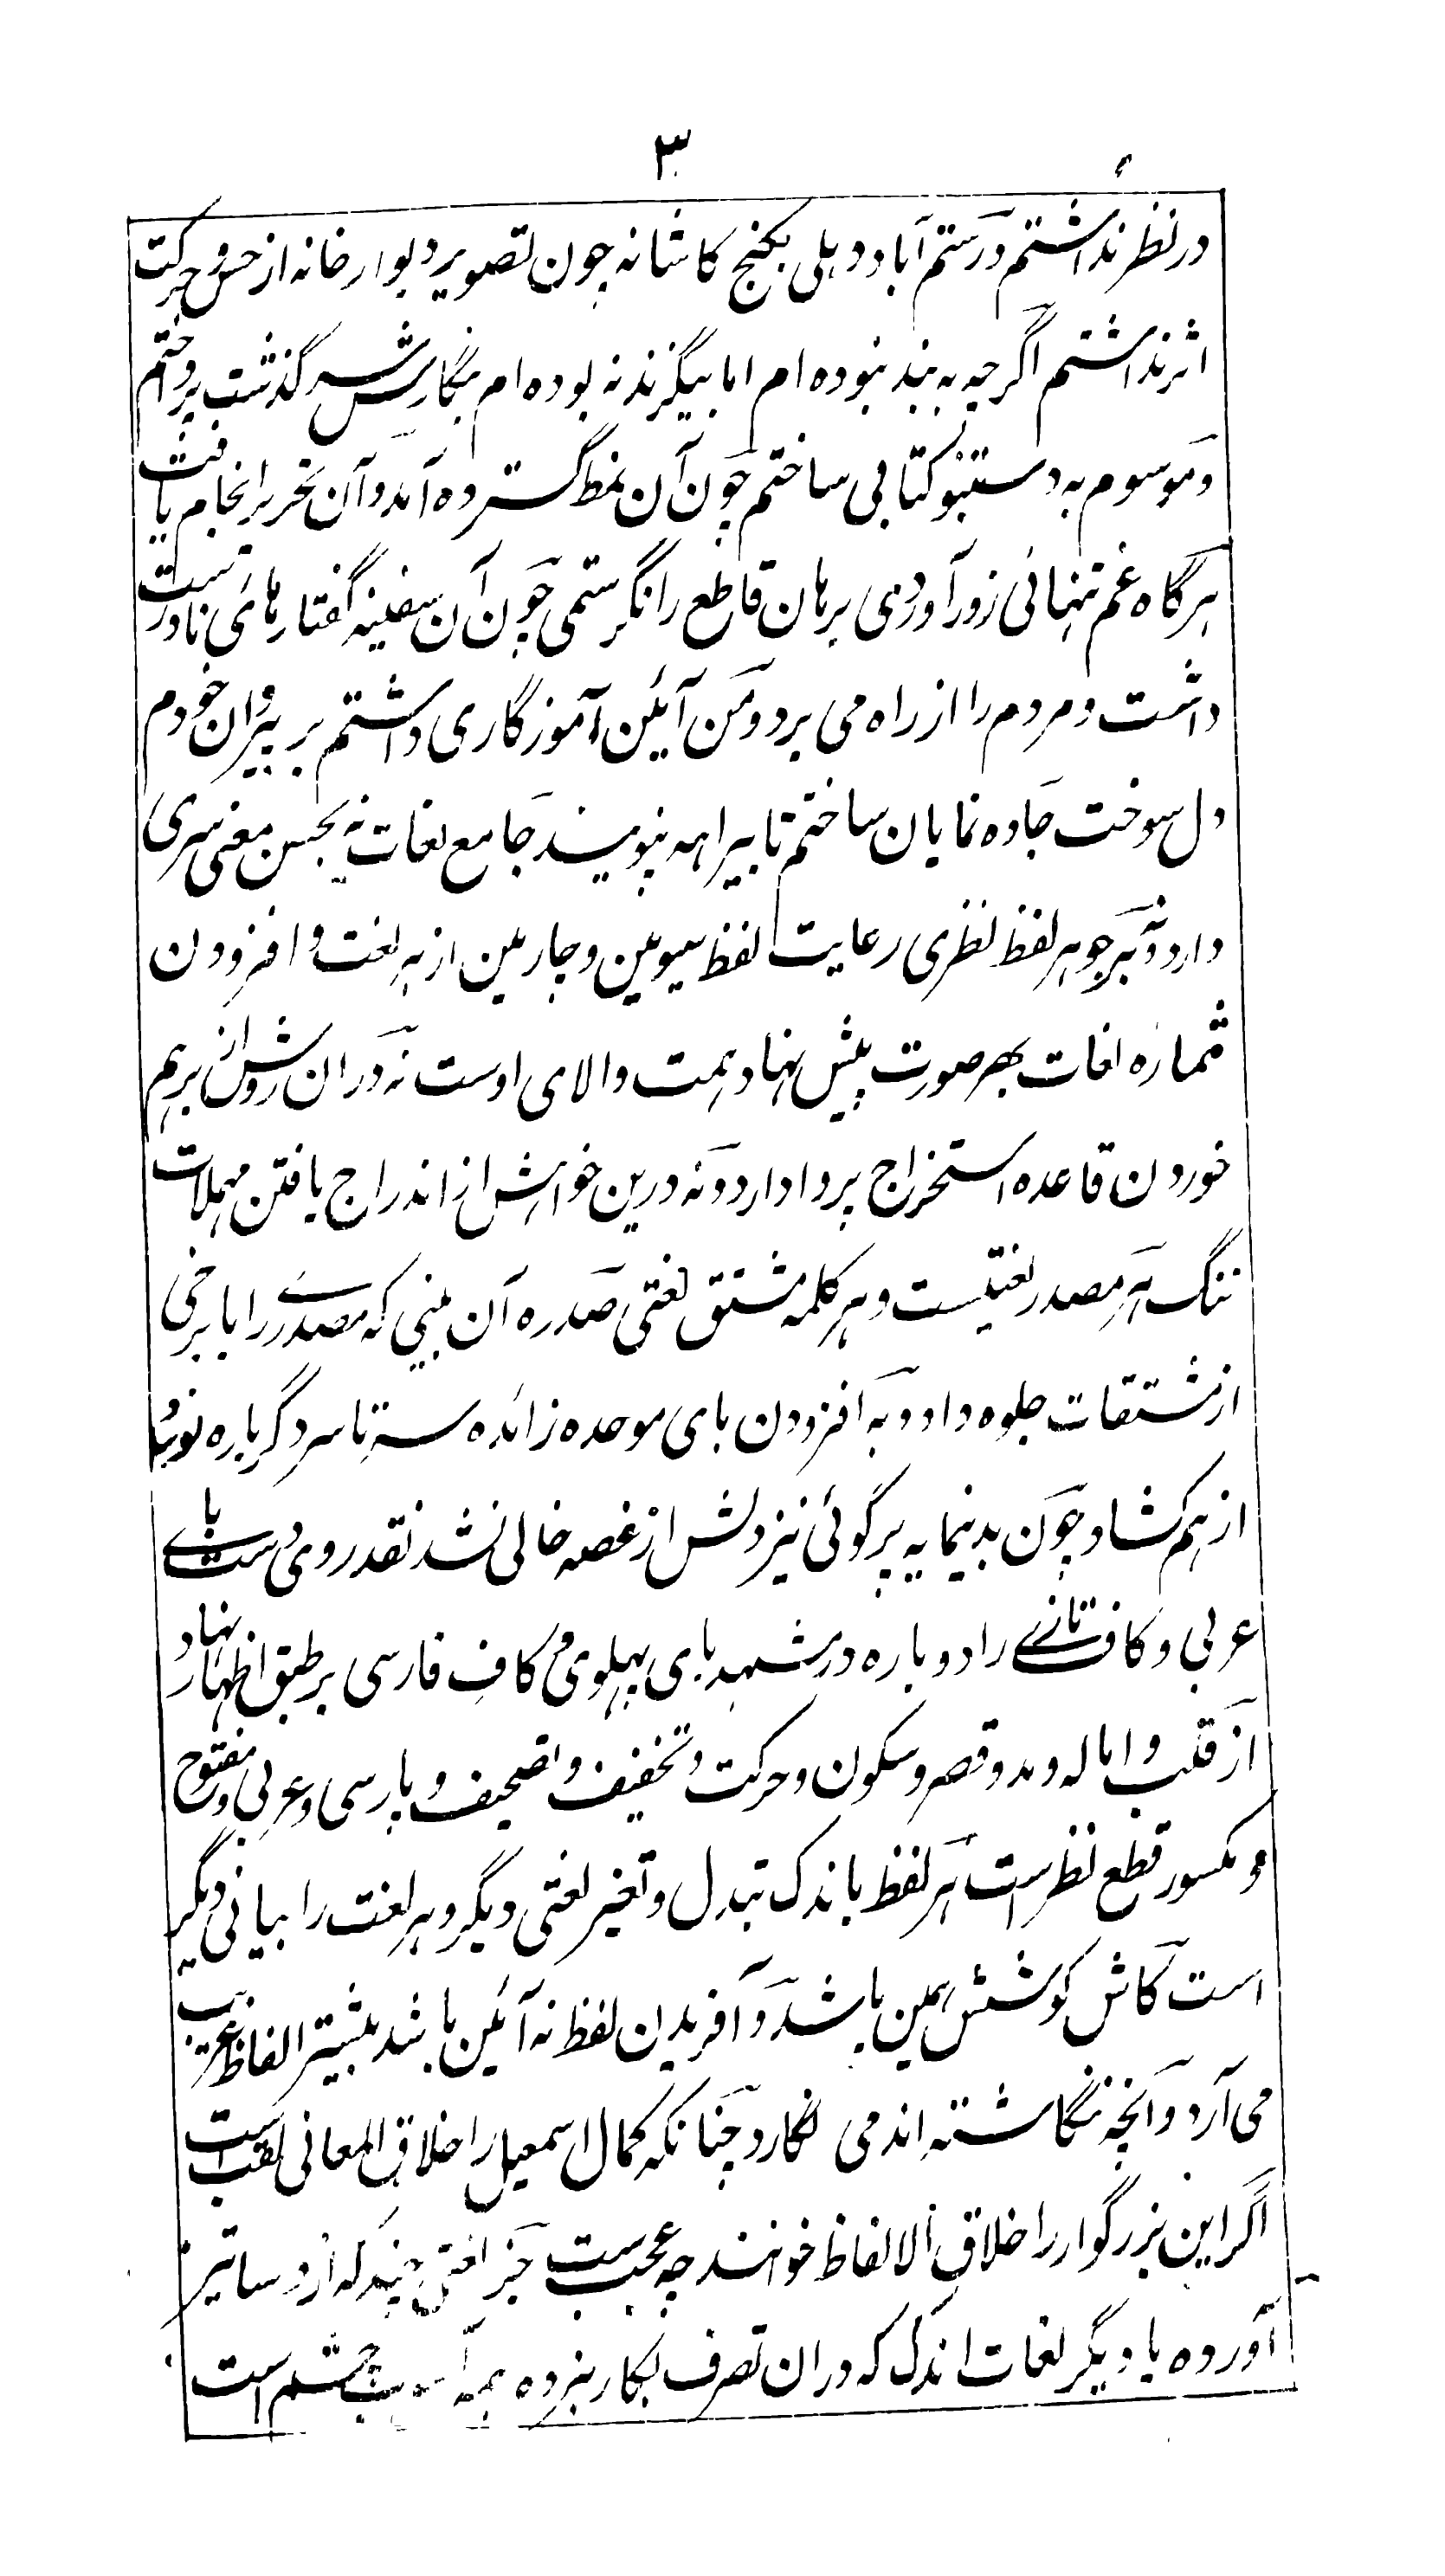 ۳
در نظر نداشتم در رستم آباد دہلی بکنج کاشانه چون تصویر دیوار خانه از حس و حرکت
اثر نداشتم اگرچه به بند نبوده ام اما بیگزند نه بوده ام بنگارش سرگذشت پرداختم
و موسوم به دستنبو کتابی ساختم چون آن نمط گسترده آمد و آن تحریر انجام یافت
ہرگاه غم تنہائی زور آوردی برہان قاطع را نگرستمی چون آن سفینه گفتارہائی نادرست
داشت و مردم را از راه می برد و من آئین آموزگاری داشتم بر پیروان خودم
دل سوخت جاده نمایان ساختم تا بیراہه نپویند جامع لغات نه بحسن معنی سری
دارد و نه بر جوہر لفظ نظری رعایت لفظ سیومین و چارمین از ہر لغت و افزودن
شماره لغات بهر صورت پیش نہاد ہمت والای اوست نه دران روش از برہم
خوردن قاعده استخراج پروا دارد و نه درین خواہش از اندراج یافتن مہملات
ننگ ہر مصدر لغتیست و ہر کلمه مشتق لغتی صدره آن بینی که مصدرے را با برخی
از مشتقات جلوه داد و به افزودن بای موحده زائده سر تا سر دگر باره نورد
از ہم کشاد چون بدینمایه پرگوئی نیز دلش از غصه خالی نشد نقد روی دست بای
عربی و کاف تازے را دوباره در مشہد بای پہلوی و کاف فارسی بر طبق اظہار نہاد
از قلب و اماله و مد و قصر و سکون و حرکت و تخفیف و تصحیف و پارسی و عربی و مفتوح
و مکسور قطع نظرست ہر لفظ باندک تبدل و تغیر لغتی دیگر و ہر لغت را بیانی دیگر
است کاش کوشش ہمین باشد و آفریدن لفظ نه آئین باشد بیشتر الفاظ غریب
می آرد و آنچه ننگاشته اند می نگارد چنانکه کمال اسمعیل را خلاق المعانی لقب است
اگر این بزرگوار را خلاق الالفاظ خوانند چه عجب ست جز لغتی چند که از دساتیر
آورده یا دیگر لغات اندک که دران تصرف بکار نبرده ہمه آشوب چشم است